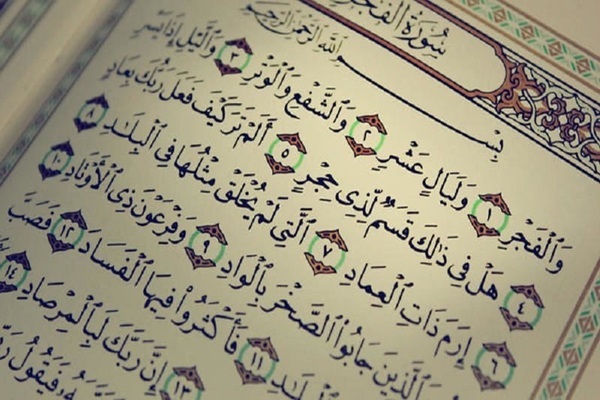 سُورَةُ الفَجْرِ
بِسْمِ اللَّهِ الرَّحْمَٰنِ الرَّحِيمِ
وَٱلْفَجْرِ ١ وَلَيَالٍ عَشْرٍ ٢ وَٱلشَّفْعِ وَٱلْوَتْرِ ٣ وَٱلَّيْلِ إِذَا يَسْرِ
٤ هَلْ فِى ذَٰلِكَ قَسَمٌ لِّذِى حِجْرٍ ٥ أَلَمْ تَرَ كَيْفَ فَعَلَ رَبُّكَ بِعَادٍ
٦ إِرَمَ ذَاتِ ٱلْعِمَادِ ٧ ٱلَّتِى لَمْ يُخْلَقْ مِثْلُهَا فِى ٱلْبِلَٰدِ ٨
ٱلَّذِينَ جَابُوا۟ ٱلصَّخْرَ بِٱلْوَادِ ٩ وَفِرْعَوْنَ ذِى ٱلْأَوْتَادِ ١٠
ٱلْبِلَٰدِ ١١ فَأَكْثَرُوا۟ فِيهَا ٱلْفَسَادَ ١٢ فَصَبَّ
١٣ إِنَّ رَبَّكَ لَبِٱلْمِرْصَادِ ١٤
فَيَقُولُ